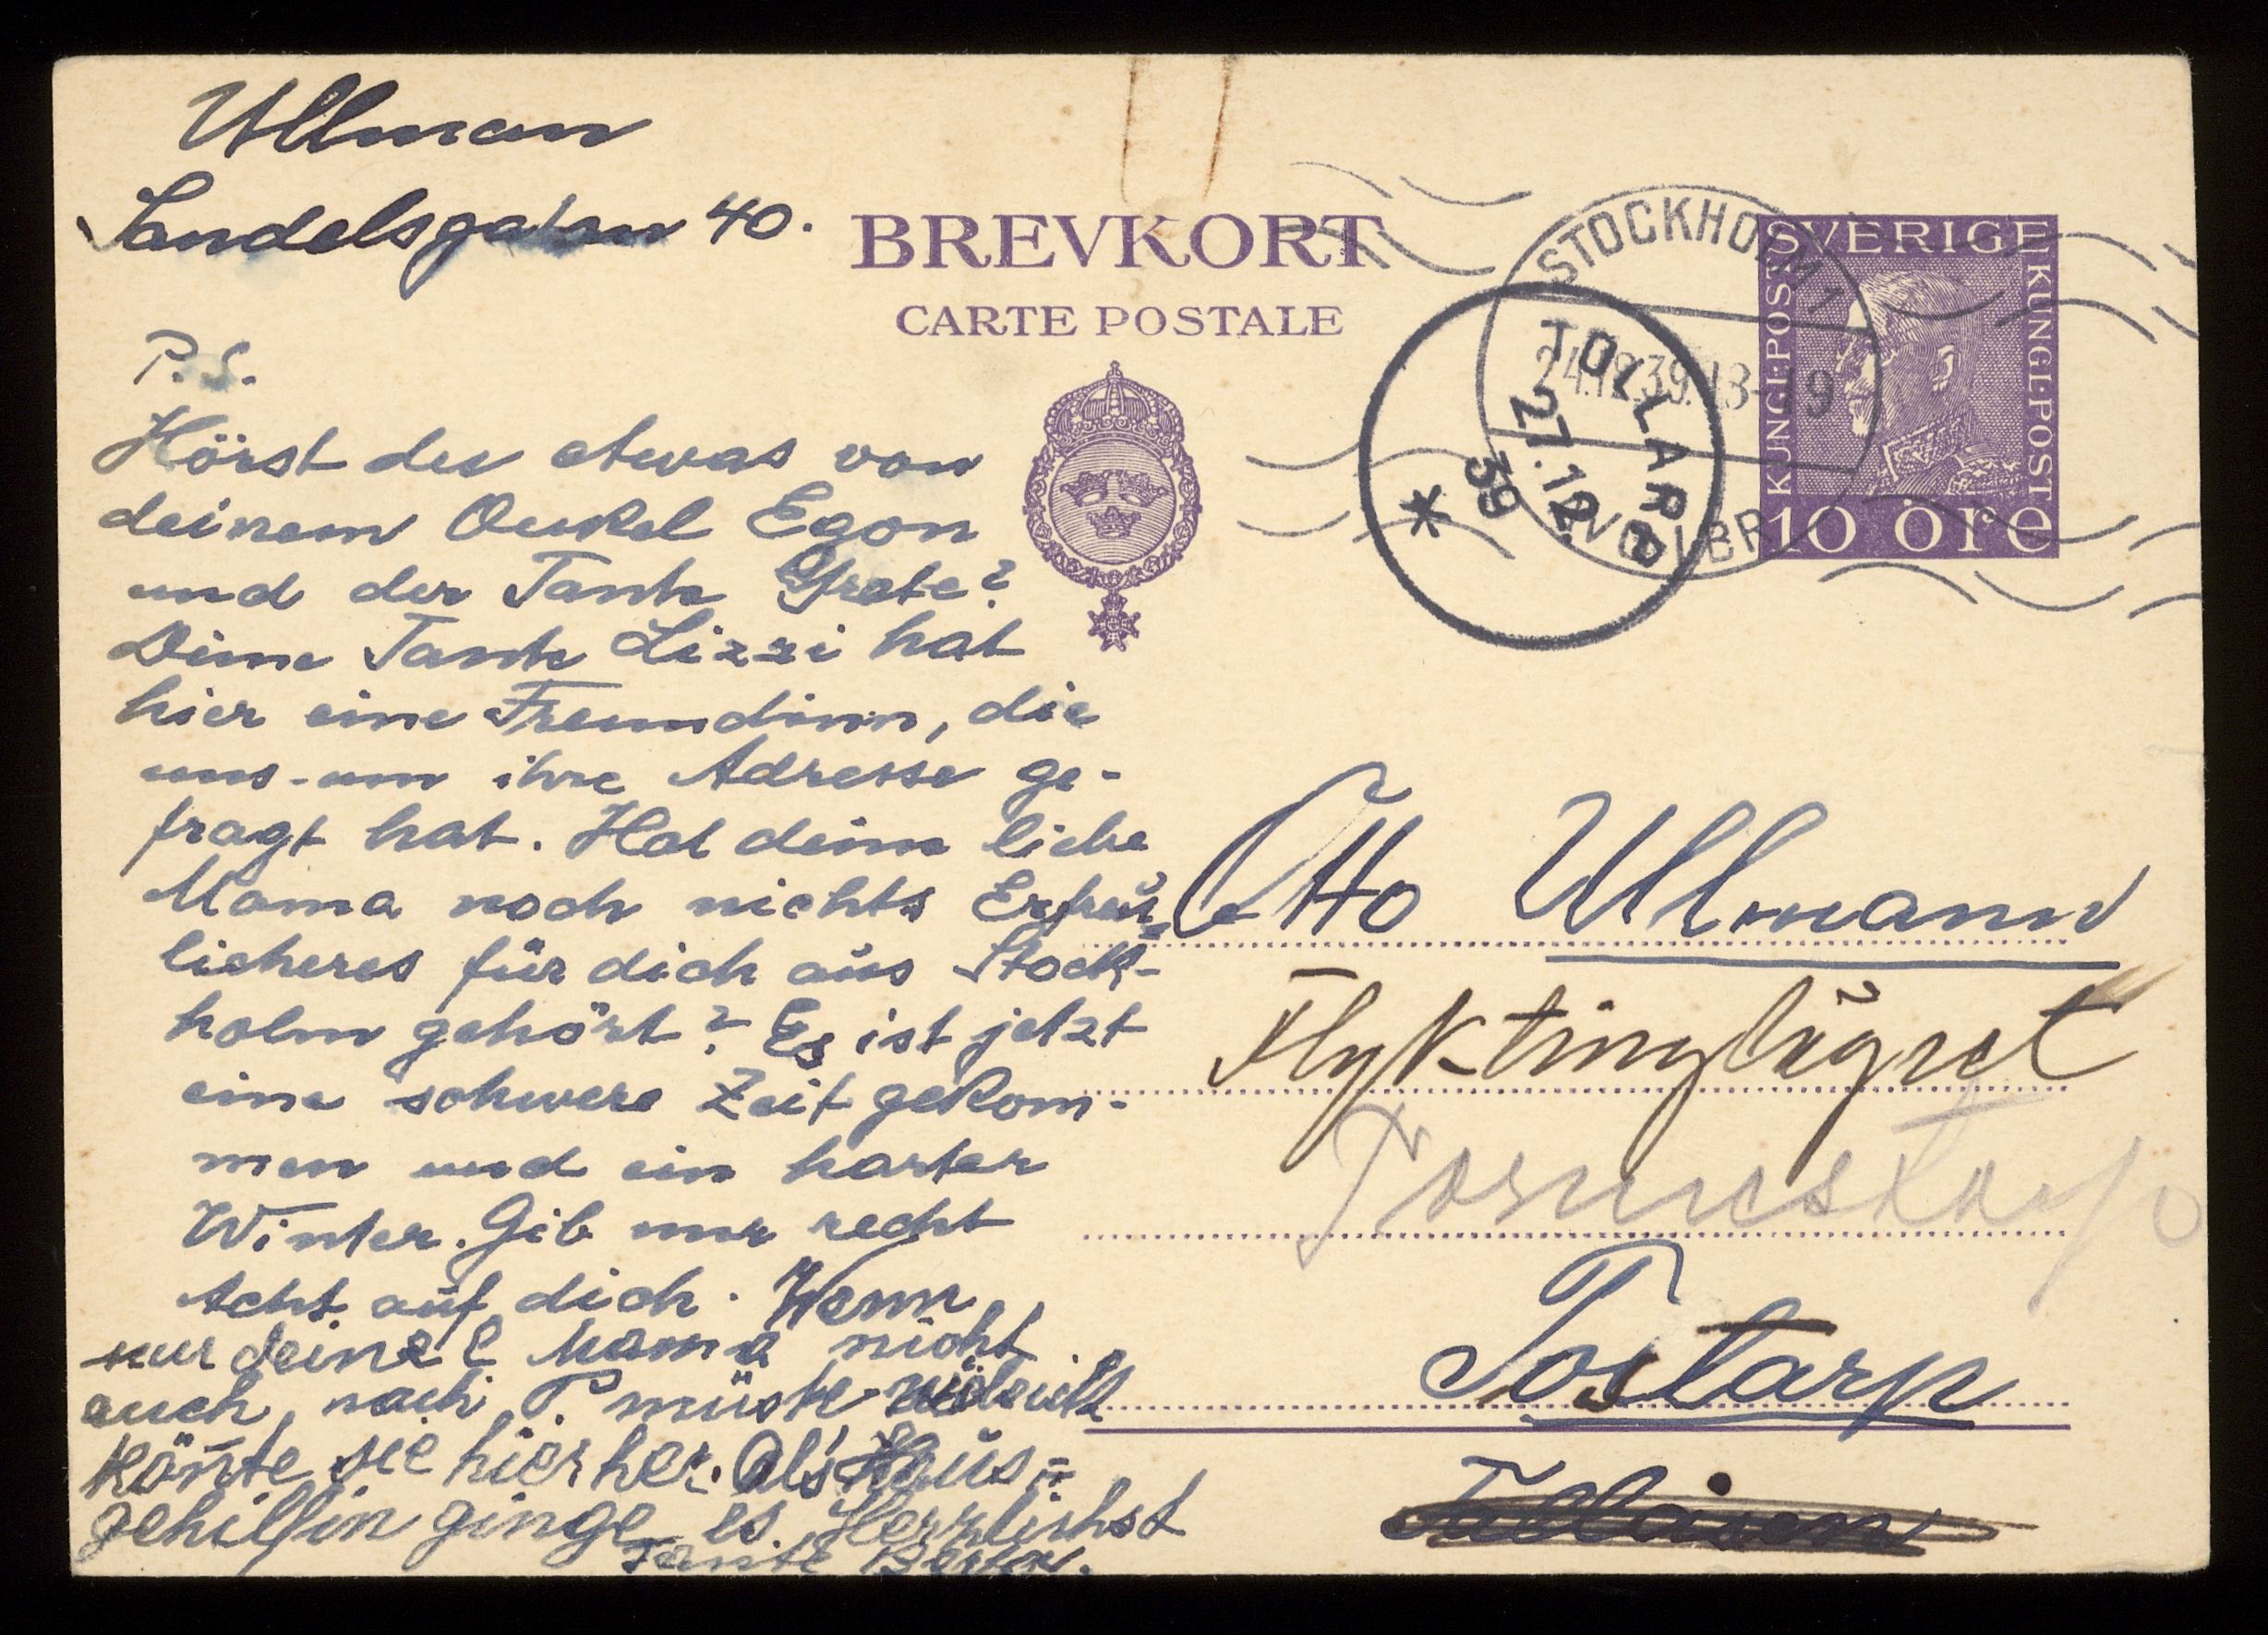 Ullman
Sandelsgatan 40.
BREVKORT
CARTE POSTALE
STOCKHOLM 1
24.12.39.18-19
TOLLARP
27.12.
39
SVERIGE
KUNGL·POST
KUNGL·POST
10 öre
P.S.
Hörst du etwas von
deinem Onkel Egon
und der Tante Grete?
Deine Tante Lizzi hat
hier eine Freundinn, die
uns um ihre Adresse ge-
fragt hat. Hat deine liebe
Mama noch nichts Erfreu-
licheres für dich aus Stock-
holm gehört? Es ist jetzt
eine schwere Zeit gekom-
men und ein harter
Winter. Gib nur recht
Acht auf dich. Wenn
nur deine l Mama nicht
auch nach P. müste vieleicht
könte sie hierher. Als Haus=
gehilfin ginge es. Herzlichst
Tante Berta.
Otto Ullmann
Flyktinglägret
Tostarp